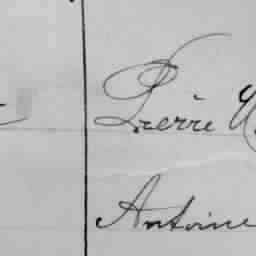 Pierre
Antoine